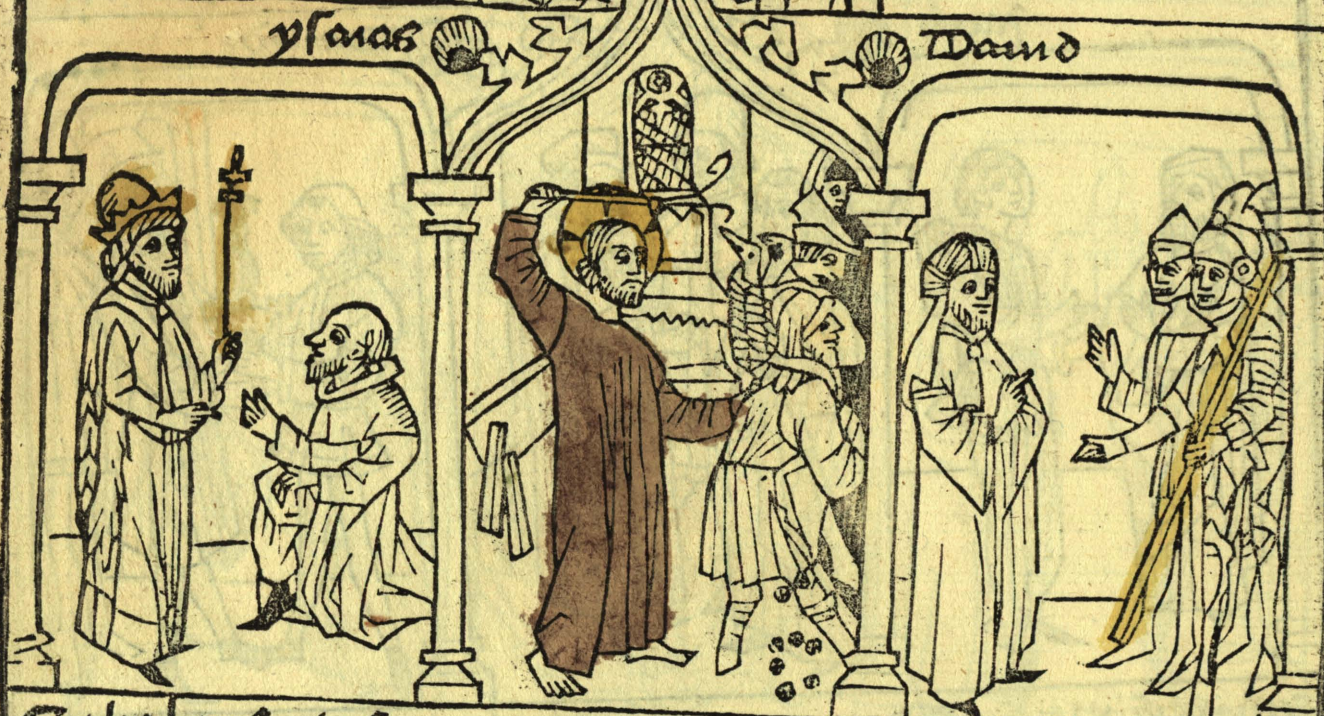 ysaias
Dauid